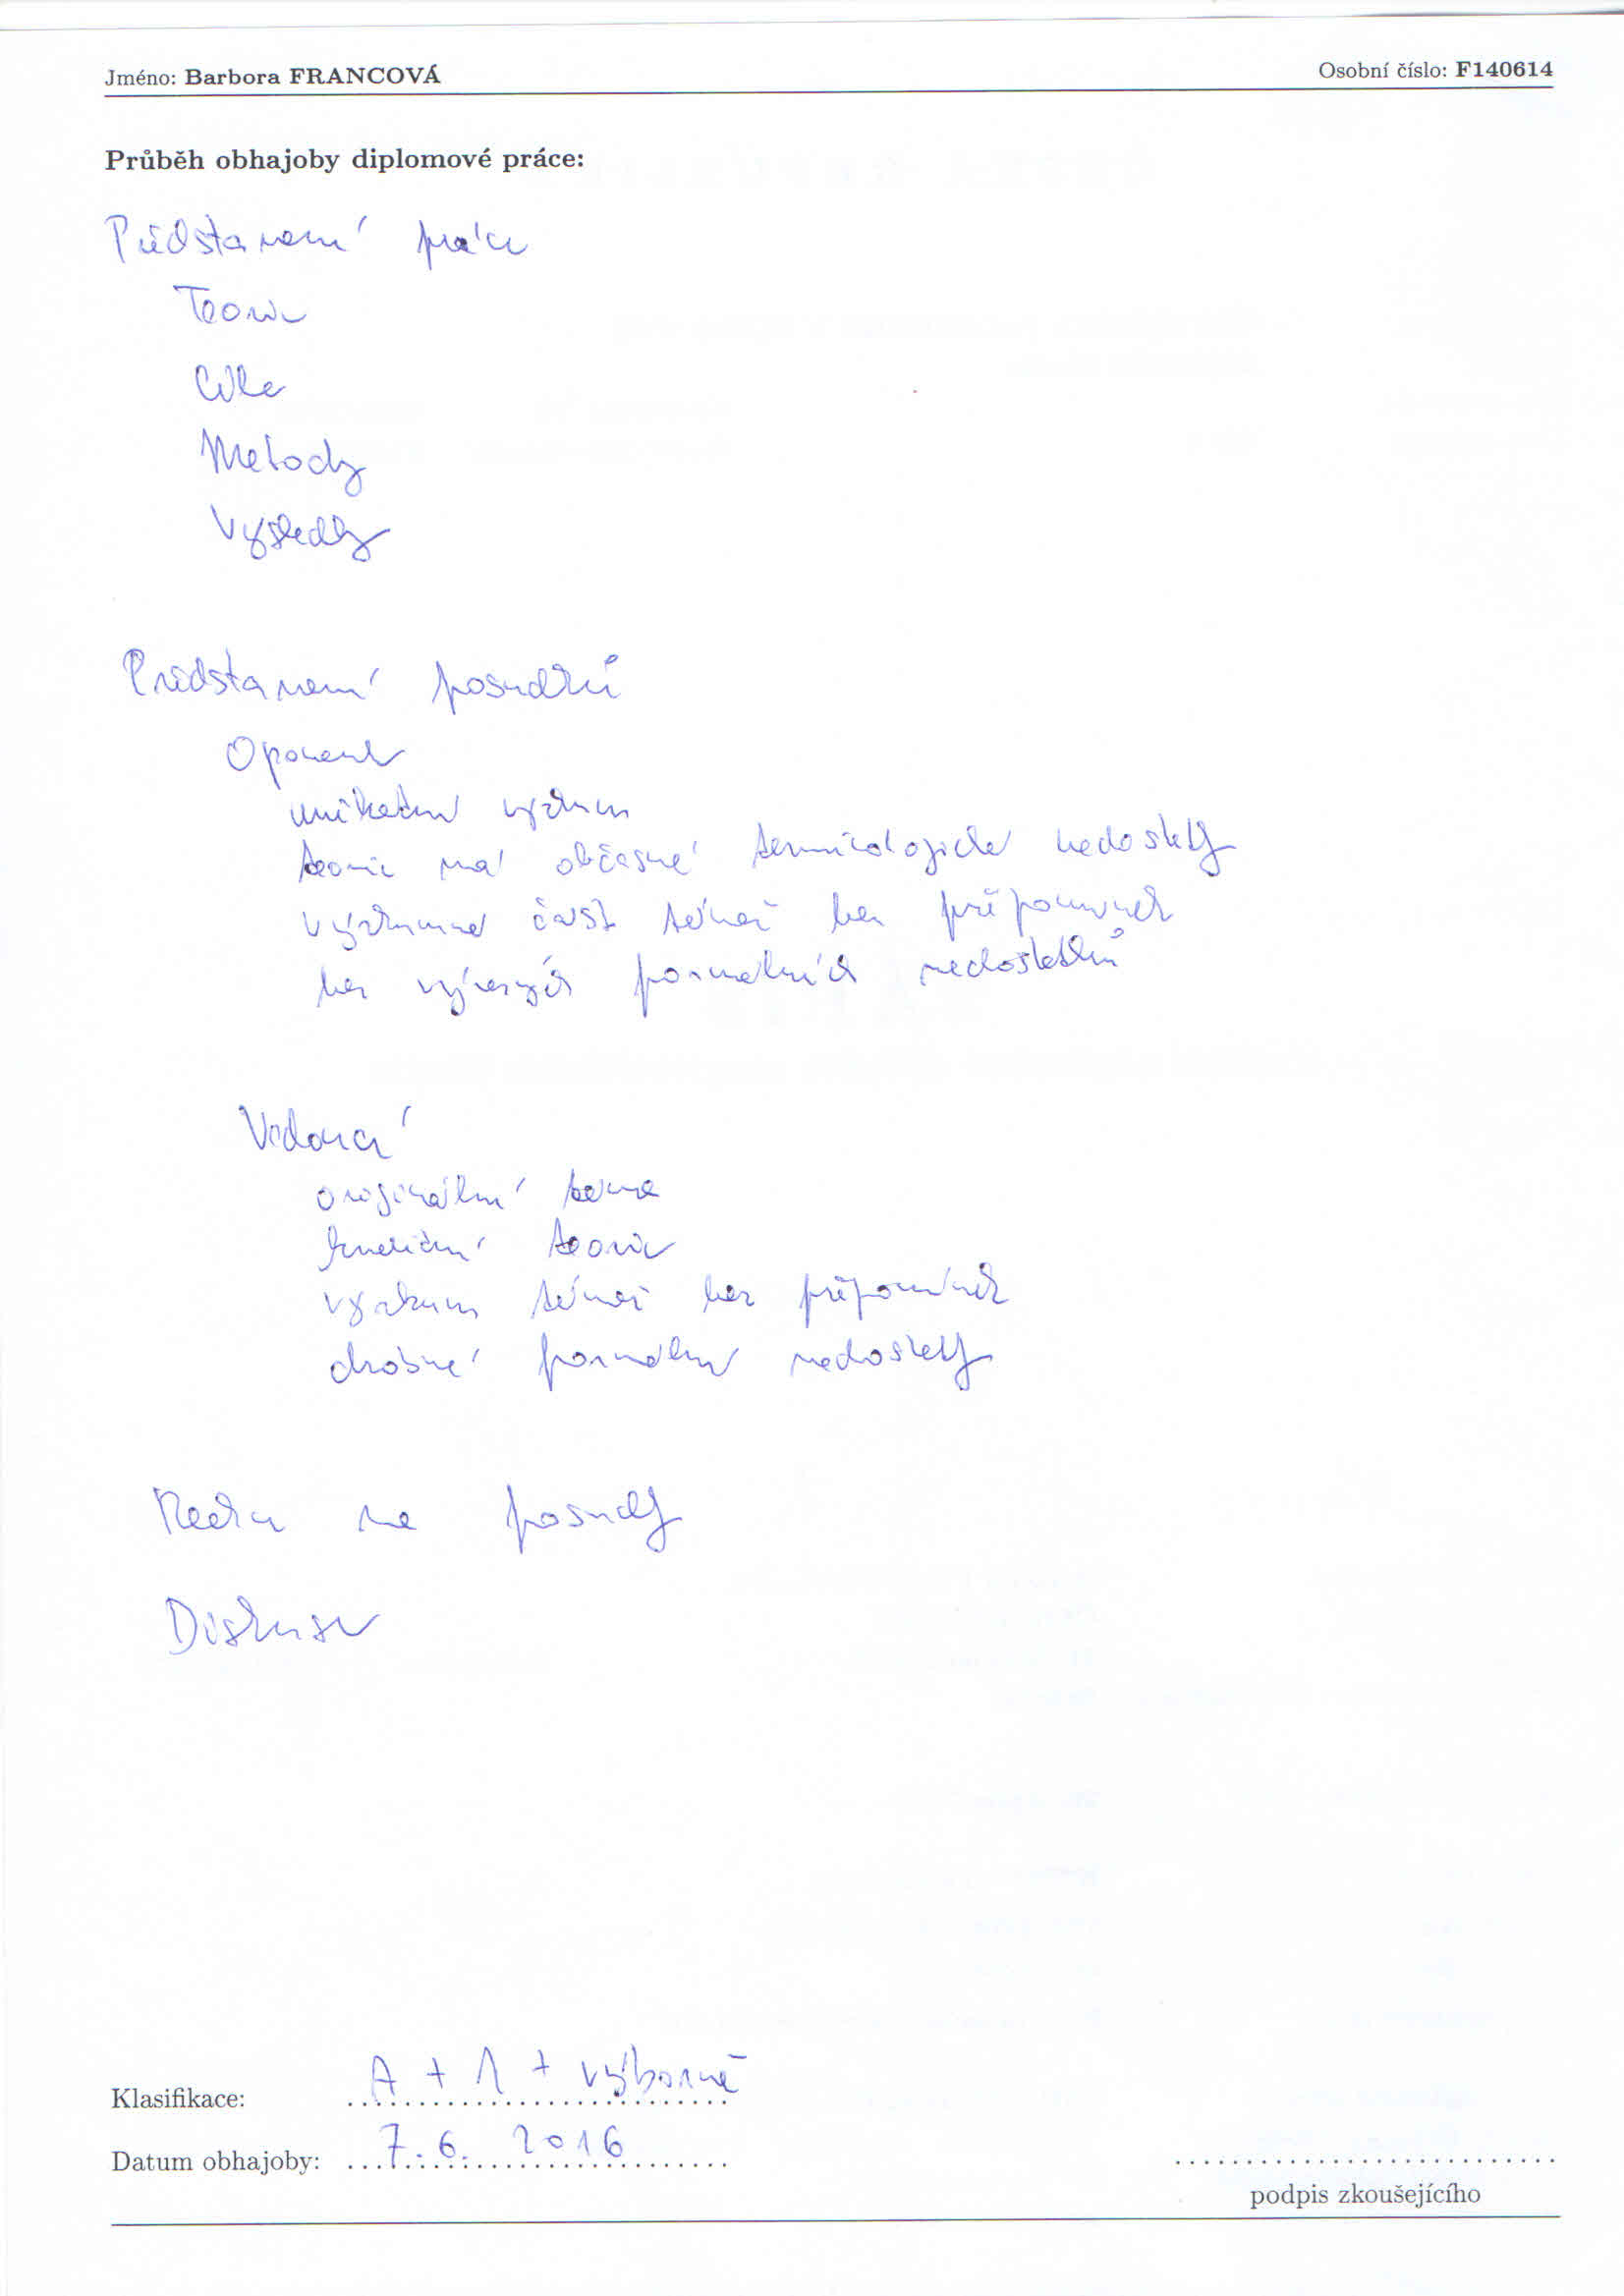 Jméno: Barbora FRANCOVÁ
Osobní číslo: F140614
Průběh obhajoby diplomové práce:
Představení práce
Teorie
Cíle
Metody
Výsledky
Představení posudků
Oponent
unikátní výzkum
teorie má občasné terminologické nedostatky
výzkumná část téměř bez připomínek
bez výrazných formálních nedostatků
Vedoucí
originální téma
teorie
výzkum téměř bez připomínek
drobné formální nedostatky
Reakce na posudky
Diskuse
Klasifikace: A + 1 + výborně
Datum obhajoby: 7.6. 2016
podpis zkoušejícího